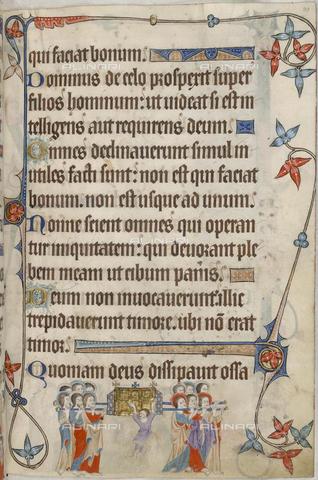 qui faciat bonum.
Dominus de celo prospexit super
filios hominum: ut uideat si est in
telligens aut requirens deum.
Omnes declinauerunt simul in
utiles facti sunt: non est qui faciat
bonum. non est usque ad unum.
Nonne scient omnes qui operan
tur iniquitatem: qui deuorant ple
bem meam ut cibum panis.
Deum non inuocauerunt: illic
trepidauerunt timore. ubi nō erat
timor.
Quoniam deus dissipauit ossa